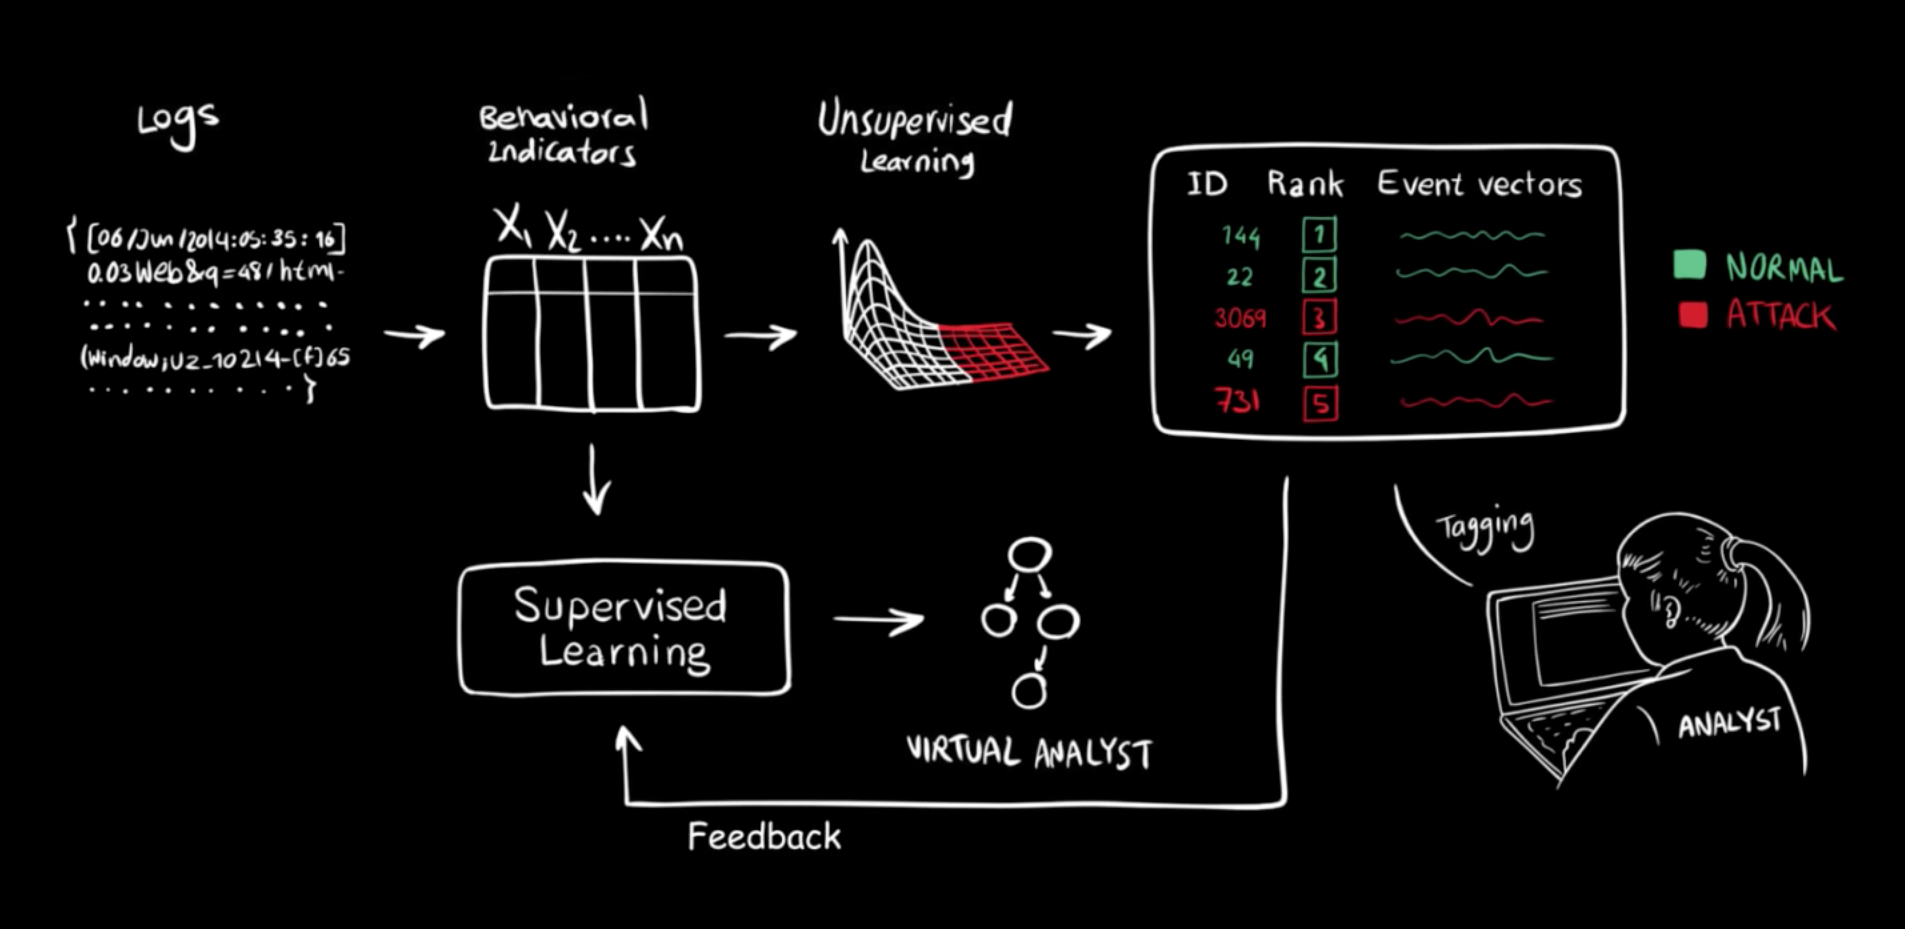 Logs
{[06/Jun/2014:05:35:16]
0.03 Web&q=48/html-
(Window;U2_10214-[f]65
}
Behavioral
Indicators
X1 X2 .... Xn
Unsupervised
Learning
ID Rank Event vectors
144 1
22 2
3069 3
49 4
731 5
NORMAL
ATTACK
Tagging
ANALYST
Supervised
Learning
VIRTUAL ANALYST
Feedback